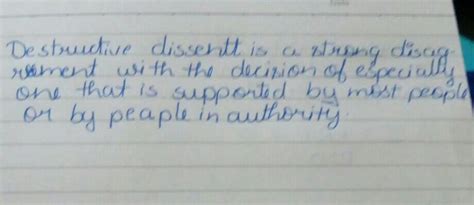 Destructive dissentt is a strong disag-
rement with the decizion of especially
one that is supported by most people
or by peaple in authority.